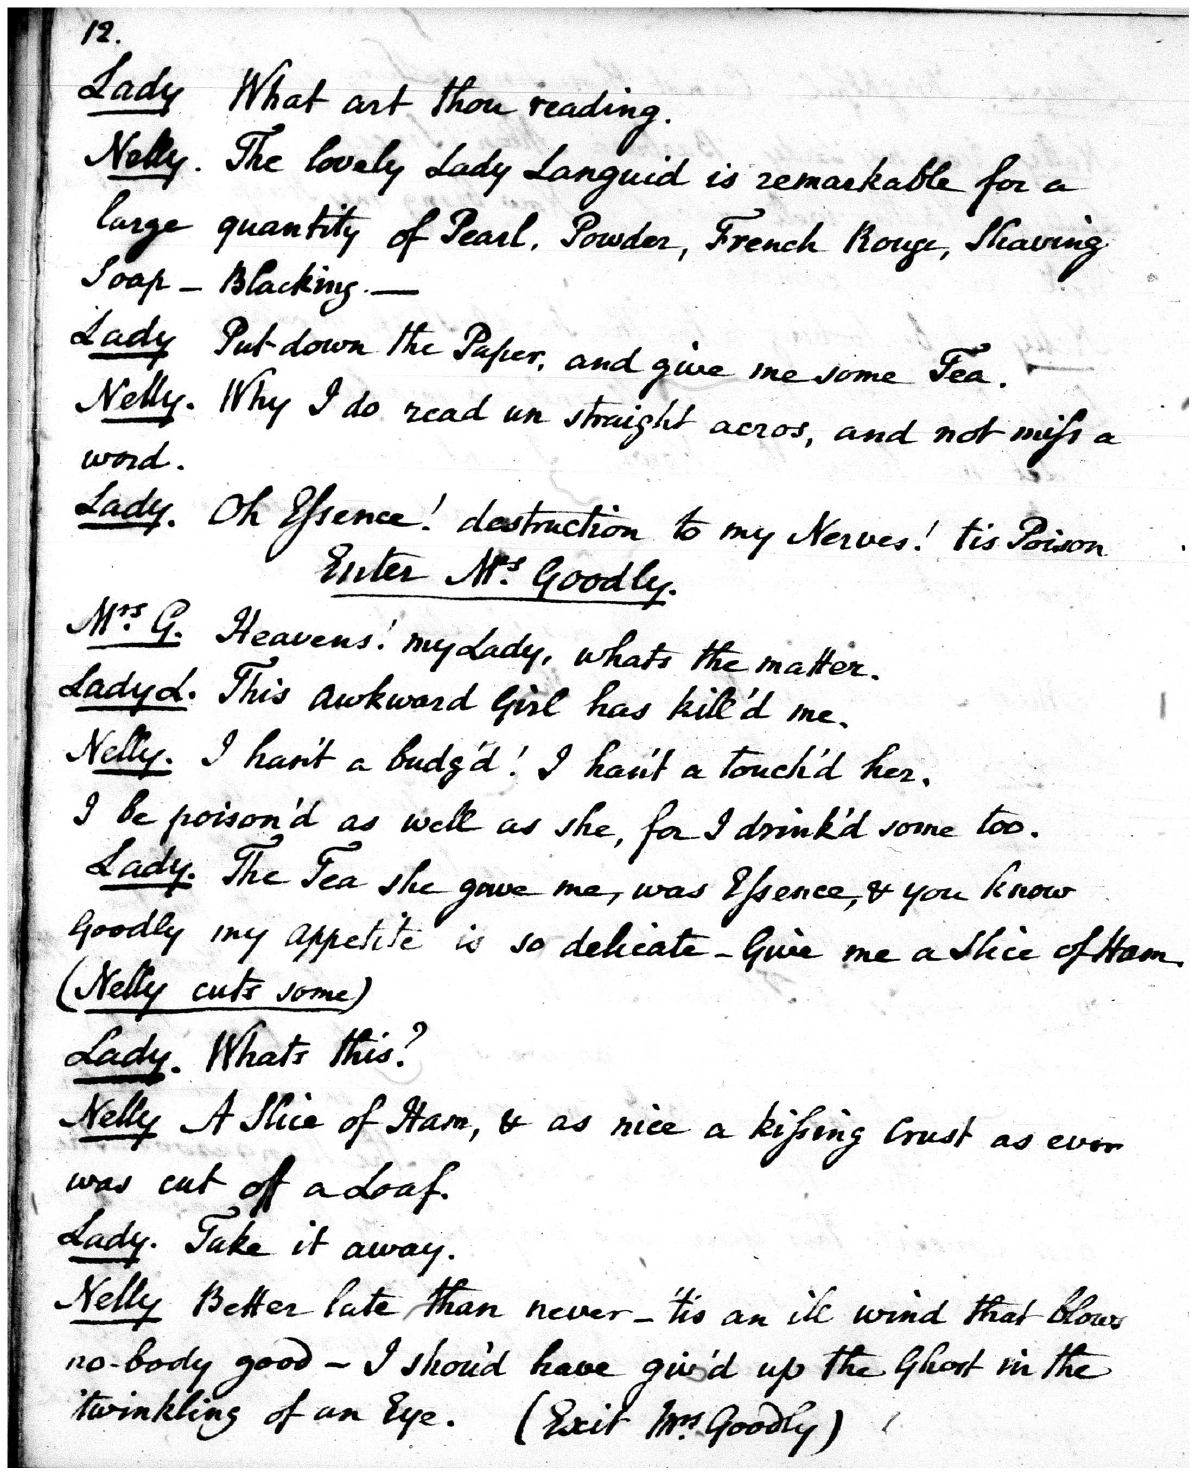 12.
Lady What art thou reading.
Nelly. The lovely Lady Languid is remarkable for a
large quantity of Pearl. Powder, French Rouge, Shaving
Soap - Blacking. —
Lady Put down the Paper, and give me some Tea. —
Nelly. Why I do read un straight acros, and not miſs a
word.
Lady. Oh Eſsence! destruction to my Nerves! tis Poison
Enter Mrs. Goodly.
Mrs. G. Heavens! my Lady, whats the matter.
Lady L. This awkward Girl has kill'd me.
Nelly. I han't a budg'd! I han't a touch'd her.
I be poison'd as well as she, for I drink'd some too.
Lady. The Tea she gave me, was Eſsence, & you know
Goodly my appetite is so delicate - Give me a Slice of Ham.
(Nelly cuts some)
Lady. Whats this?
Nelly A Slice of Ham, & as nice a kiſsing Crust as ever
was cut off a Loaf.
Lady. Take it away.
Nelly Better late than never - 'tis an ill wind that blows
no-body good - I shou'd have giv'd up the Ghost in the
twinkling of an Eye. (Exit Mrs. Goodly)